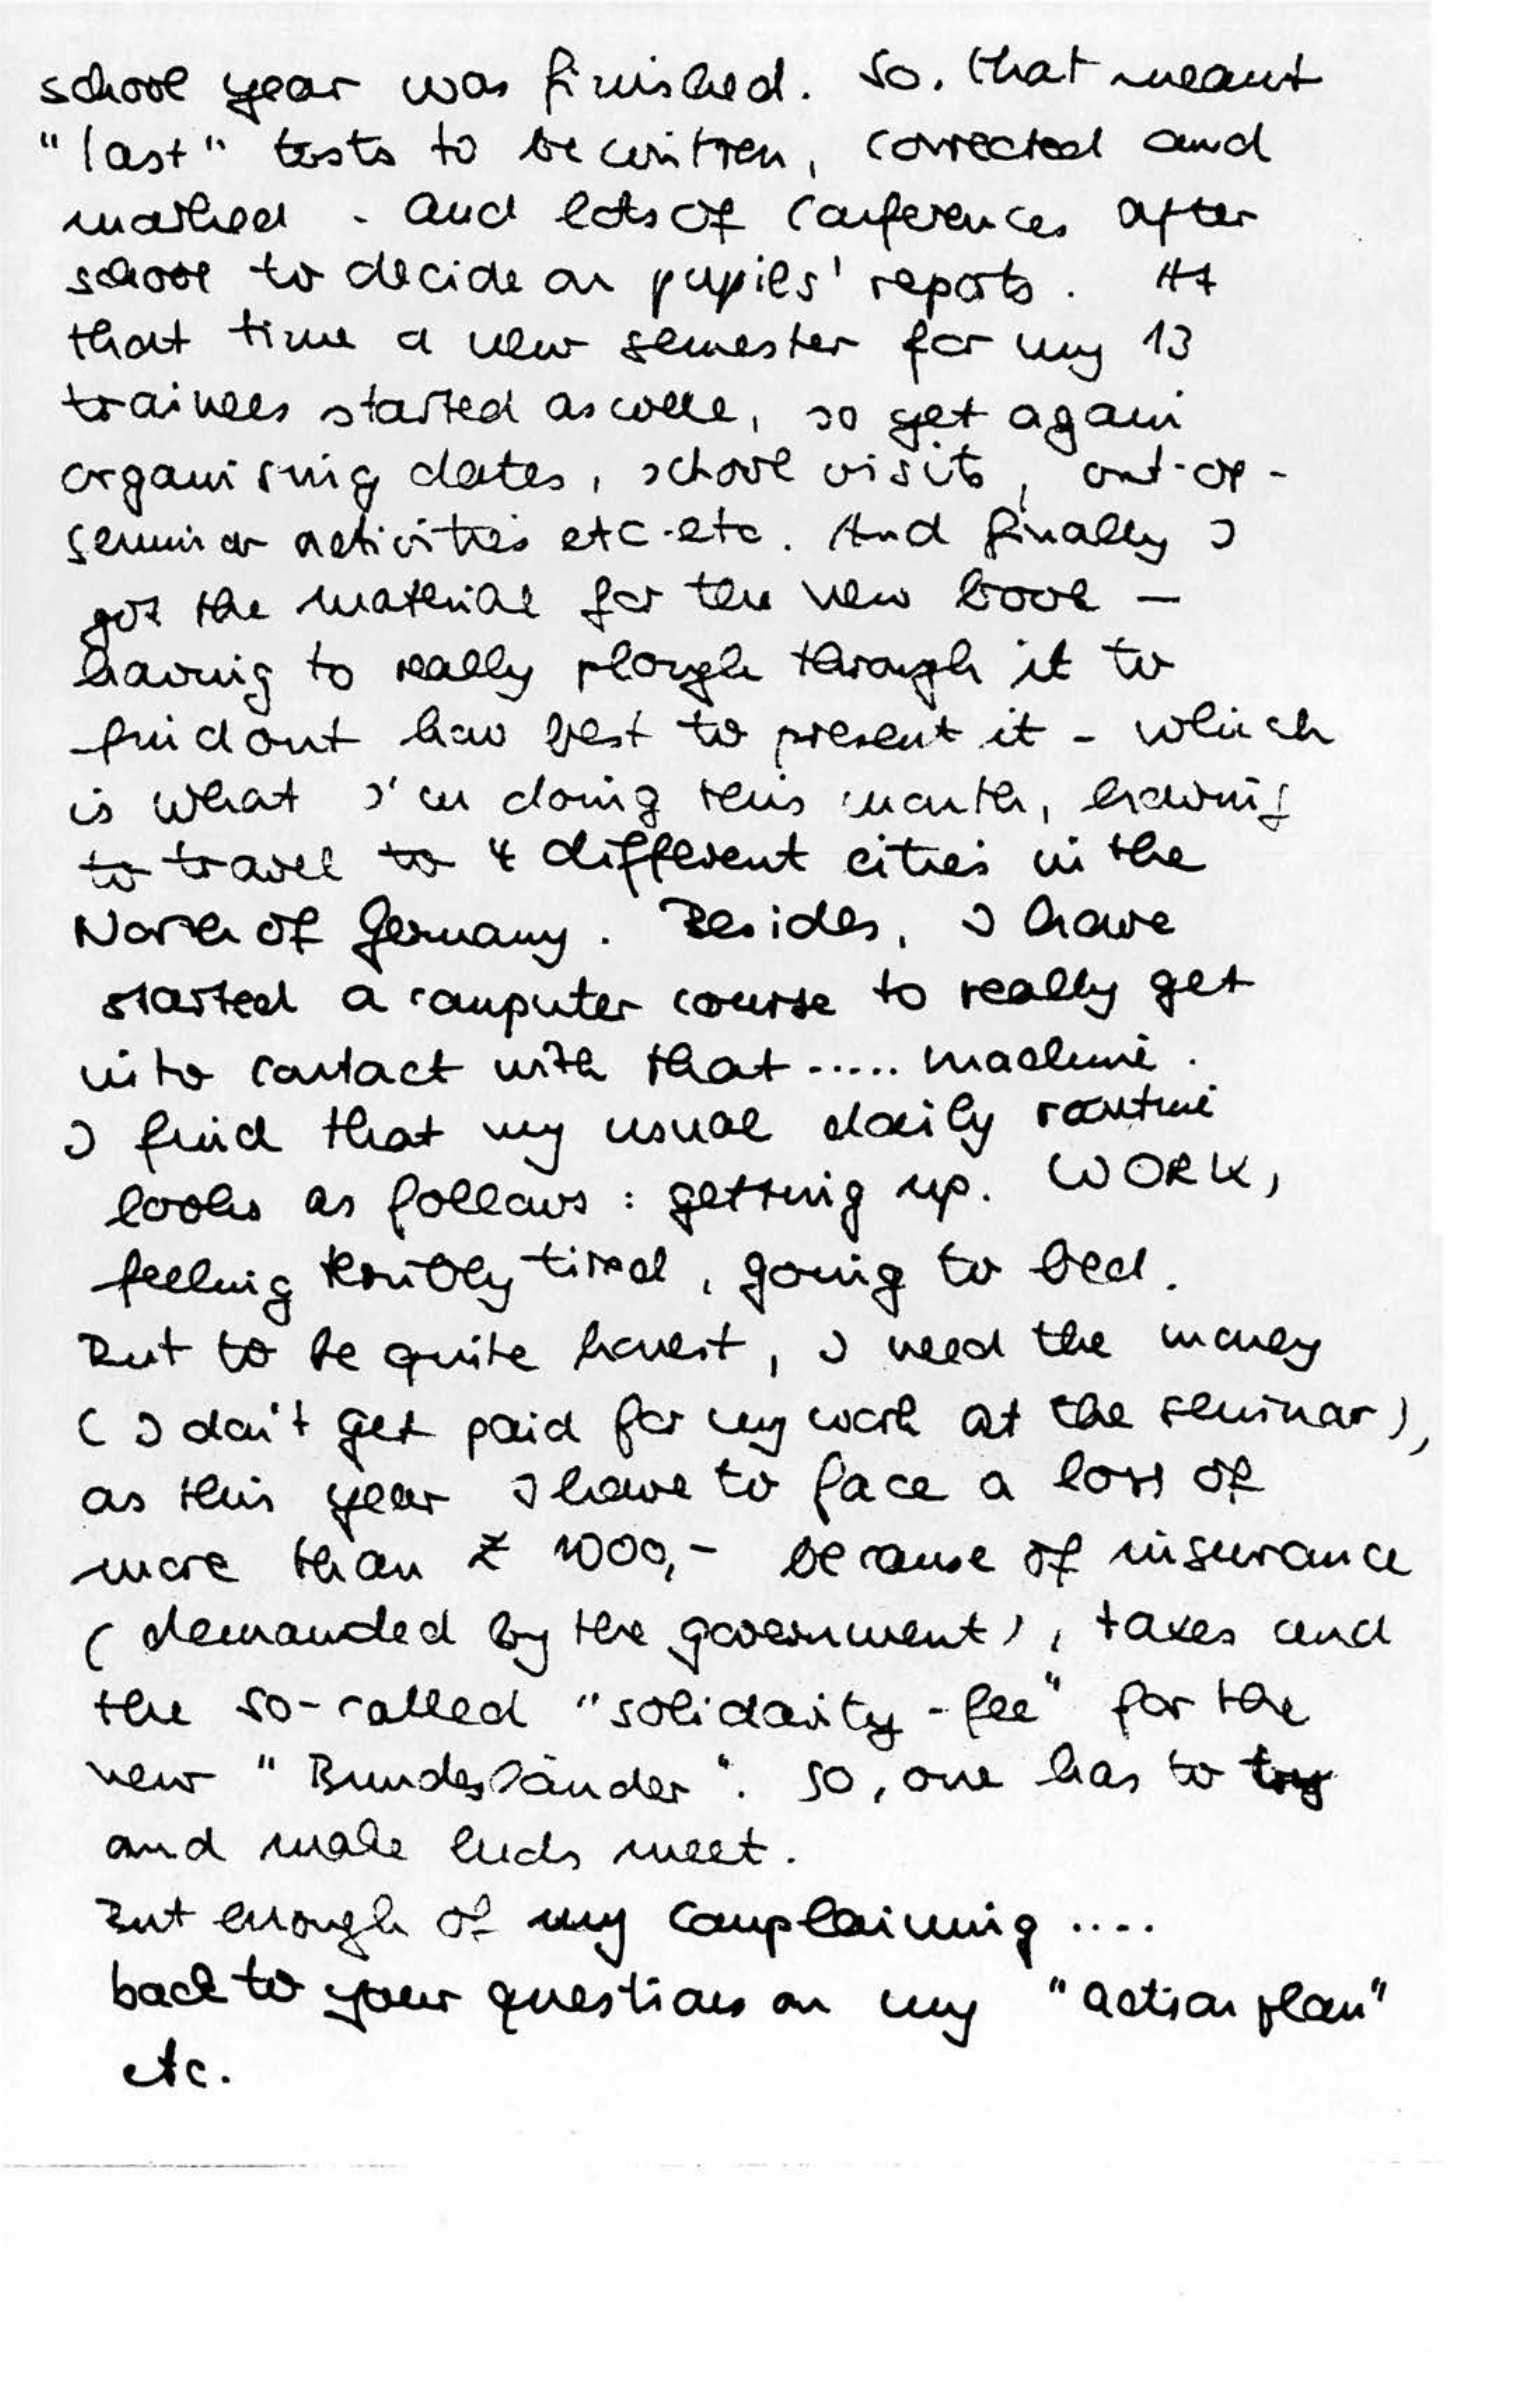 school year was finished. So, that meant
"last" tests to be written, corrected and
marked - and lots of conferences after
school to decide on pupils' reports. At
that time a new semester for my 13
trainees started as well, so yet again
organising dates, school visits, out-of-
seminar activities etc. etc. And finally I
got the material for the new book –
having to really plough through it to
find out how best to present it - which
is what I'm doing this month, having
to travel to 4 different cities in the
North of Germany. Besides, I have
started a computer course to really get
into contact with that ..... machine.
I find that my usual daily routine
looks as follows: getting up. WORK,
feeling terribly tired, going to bed.
But to be quite honest, I need the money
(I don't get paid for my work at the seminar),
as this year I have to face a loss of
more than £ 1000,- because of insurance
(demanded by the government), taxes and
the so-called "solidarity-fee" for the
new "Bundesländer". So, one has to try
and make ends meet.
But enough of my complaining ....
back to your questions on my "action plan"
etc.